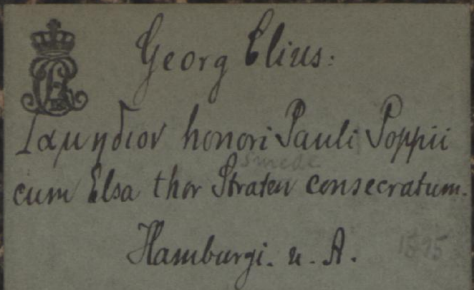 Georg Elius:
Γαμηδιον honori Pauli Poppii
smede
cum Elsa thor Straten consecratum.
Hamburgi. u. A.
1595